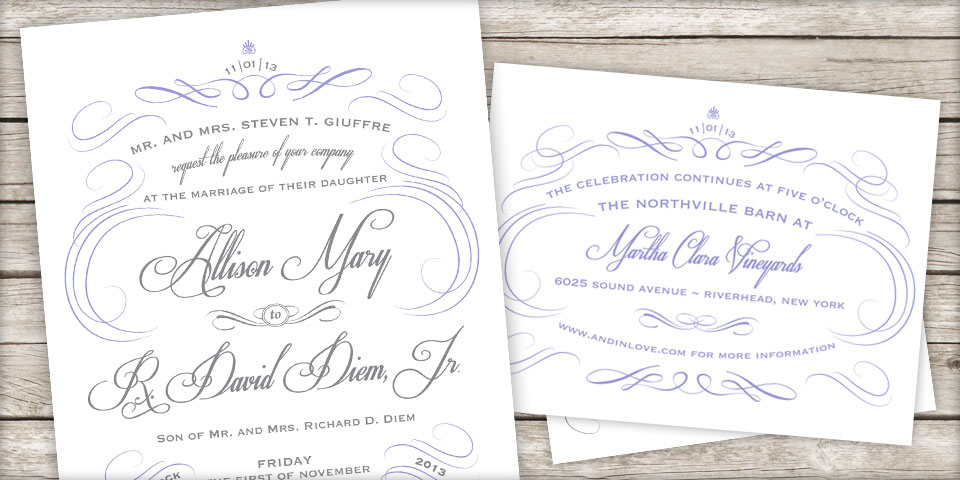 11|01|13
MR. AND MRS. STEVEN T. GIUFFRE
request the pleasure of your company
AT THE MARRIAGE OF THEIR DAUGHTER
Allison Mary
to
R. David Diem, Jr.
SON OF MR. AND MRS. RICHARD D. DIEM
FRIDAY
FIRST OF NOVEMBER
2013
11|01|13
THE CELEBRATION CONTINUES AT FIVE O'CLOCK
THE NORTHVILLE BARN AT
Martha Clara Vineyards
6025 SOUND AVENUE ~ RIVERHEAD, NEW YORK
WWW.ANDINLOVE.COM FOR MORE INFORMATION